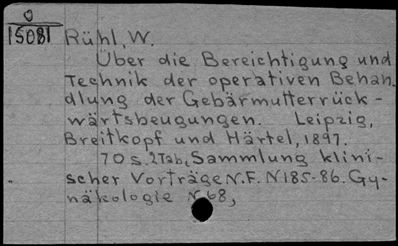 0
15081
Rühl, W.
Über die Bereichtigung und
Technik der operativen Behan-
dlung der Gebärmutterrück-
wärtsbeugungen. Leipzig,
Breitkopf und Härtel, 1897.
70 s. 2 Tab. Sammlung klini-
scher Vorträge N.F. N185-86. Gy-
näkologie N 68,